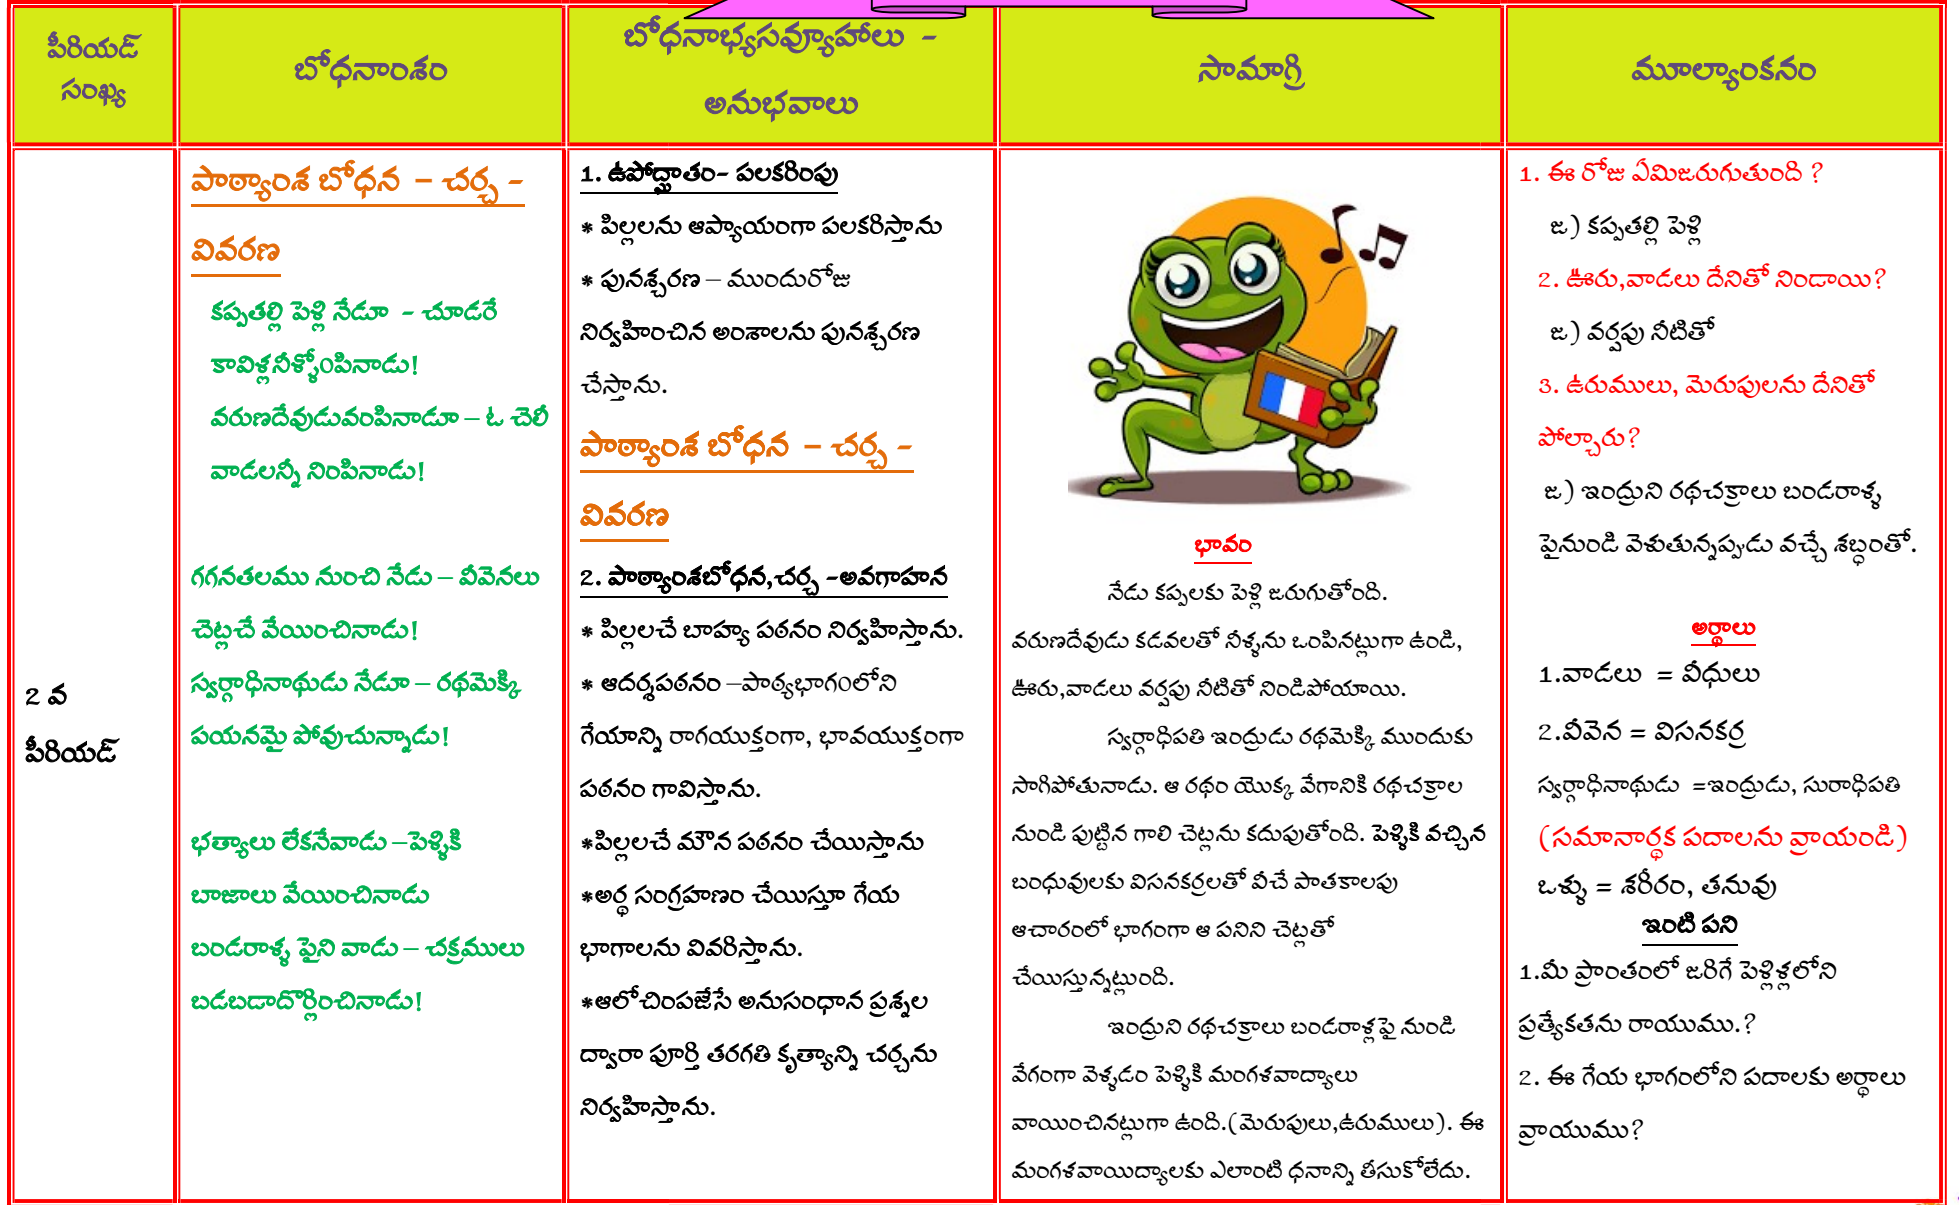 పీరియడ్
సంఖ్య
బోధనాంశం
బోధనాభ్యసవ్యూహాలు -
అనుభవాలు
సామాగ్రి
మూల్యాంకనం
2 వ
పీరియడ్
పాఠ్యాంశ బోధన – చర్చ -
వివరణ
కప్పతల్లి పెళ్లి నేడూ - చూడరే
కావిళ్లనీళ్ళోంపినాడు!
వరుణదేవుడువంపినాడూ – ఓ చెలీ
వాడలన్నీ నింపినాడు!
గగనతలము నుంచి నేడు – వీవెనలు
చెట్లచే వేయించినాడు!
స్వర్గాధినాథుడు నేడూ – రథమెక్కి
పయనమై పోవుచున్నాడు!
భత్యాలు లేకనేవాడు –పెళ్ళికి
బాజాలు వేయించినాడు
బండరాళ్ళ పైని వాడు – చక్రములు
బడబడాదొర్లించినాడు!
1. ఉపోద్ఘాతం- పలకరింపు
* పిల్లలను ఆప్యాయంగా పలకరిస్తాను
* పునశ్చరణ – ముందురోజు
నిర్వహించిన అంశాలను పునశ్చరణ
చేస్తాను.
పాఠ్యాంశ బోధన – చర్చ -
వివరణ
2. పాఠ్యాంశబోధన,చర్చ -అవగాహన
* పిల్లలచే బాహ్య పఠనం నిర్వహిస్తాను.
* ఆదర్శపఠనం –పాఠ్యభాగంలోని
గేయాన్ని రాగయుక్తంగా, భావయుక్తంగా
పఠనం గావిస్తాను.
*పిల్లలచే మౌన పఠనం చేయిస్తాను
*అర్థ సంగ్రహణం చేయిస్తూ గేయ
భాగాలను వివరిస్తాను.
*ఆలోచింపజేసే అనుసంధాన ప్రశ్నల
ద్వారా పూర్తి తరగతి కృత్యాన్ని చర్చను
నిర్వహిస్తాను.
భావం
నేడు కప్పలకు పెళ్లి జరుగుతోంది.
వరుణదేవుడు కడవలతో నీళ్ళను ఒంపినట్లుగా ఉండి,
ఊరు,వాడలు వర్షపు నీటితో నిండిపోయాయి.
స్వర్గాధిపతి ఇంద్రుడు రథమెక్కి ముందుకు
సాగిపోతునాడు. ఆ రథం యొక్క వేగానికి రథచక్రాల
నుండి పుట్టిన గాలి చెట్లను కదుపుతోంది. పెళ్ళికి వచ్చిన
బంధువులకు విసనకర్రలతో వీచే పాతకాలపు
ఆచారంలో భాగంగా ఆ పనిని చెట్లతో
చేయిస్తున్నట్లుంది.
ఇంద్రుని రథచక్రాలు బండరాళ్లపై నుండి
వేగంగా వెళ్ళడం పెళ్ళికి మంగళవాద్యాలు
వాయించినట్లుగా ఉంది.(మెరుపులు,ఉరుములు). ఈ
మంగళవాయిద్యాలకు ఎలాంటి ధనాన్ని తీసుకోలేదు.
1. ఈ రోజు ఏమిజరుగుతుంది ?
జ) కప్పతల్లి పెళ్లి
2. ఊరు,వాడలు దేనితో నిండాయి?
జ) వర్షపు నీటితో
3. ఉరుములు, మెరుపులను దేనితో
పోల్చారు?
జ) ఇంద్రుని రథచక్రాలు బండరాళ్ళ
పైనుండి వెళుతున్నప్పుడు వచ్చే శబ్ధంతో.
అర్థాలు
1.వాడలు = వీధులు
2.వీవెన = విసనకర్ర
స్వర్గాధినాథుడు =ఇంద్రుడు, సురాధిపతి
(సమానార్థక పదాలను వ్రాయండి)
ఒళ్ళు = శరీరం, తనువు
ఇంటి పని
1.మీ ప్రాంతంలో జరిగే పెళ్లిళ్లలోని
ప్రత్యేకతను రాయుము.?
2. ఈ గేయ భాగంలోని పదాలకు అర్థాలు
వ్రాయుము?